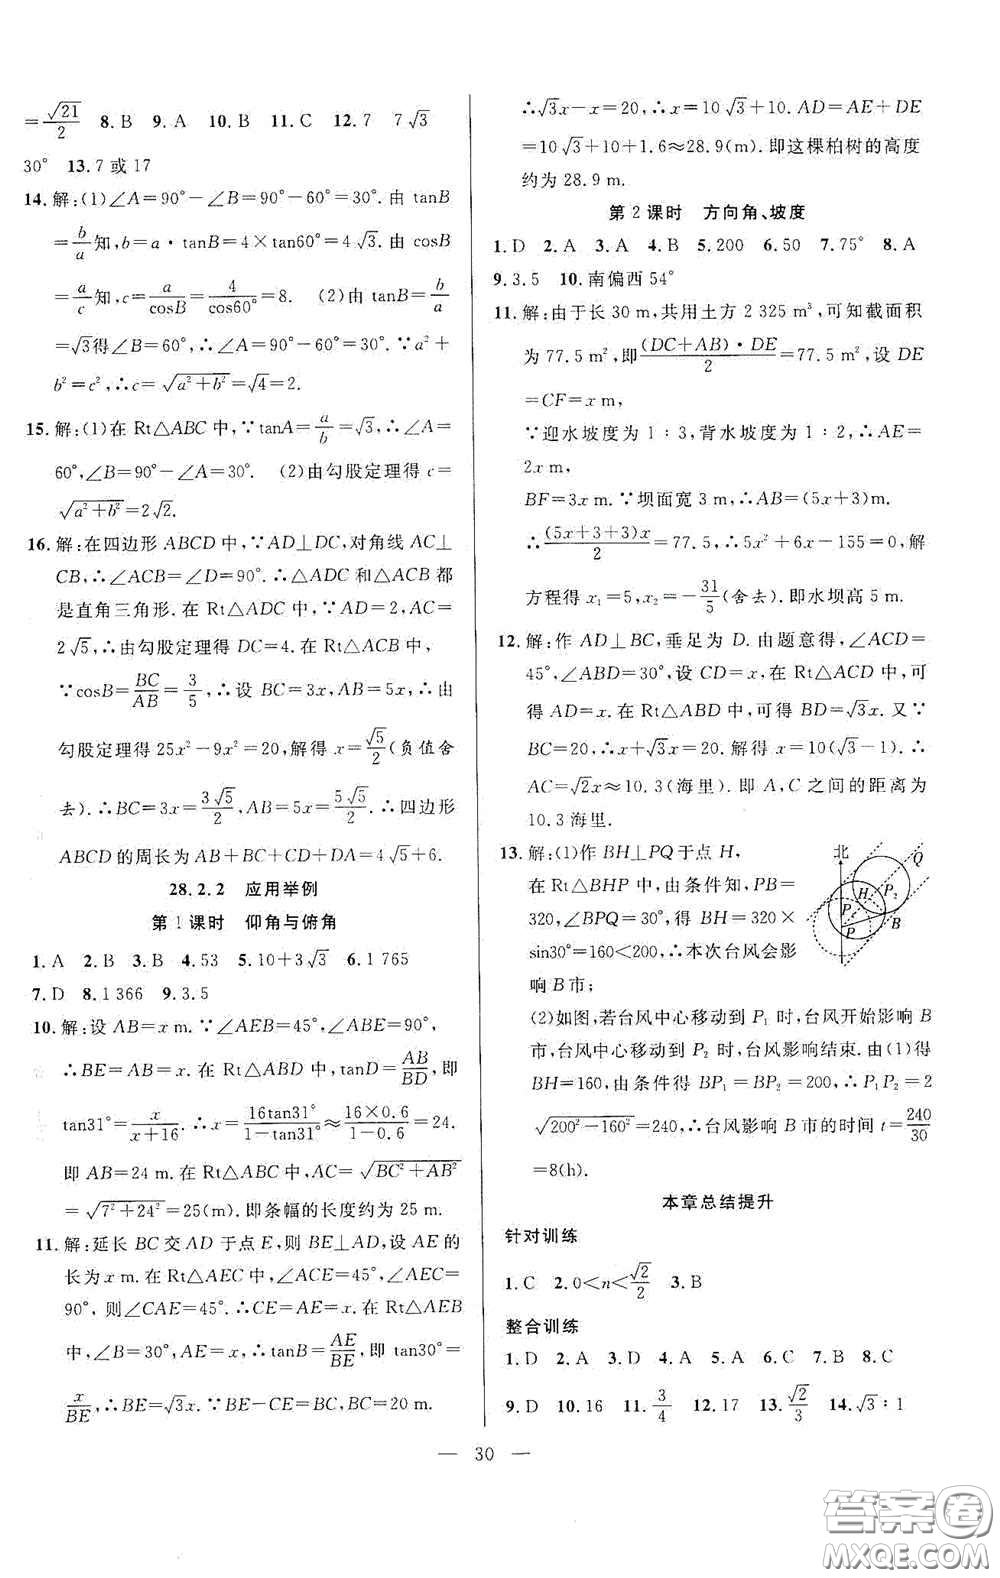 =√21/2 8.B 9.A 10.B 11.C 12.7 7√3
30° 13.7 或 17
14.解:(1)∠A=90°-∠B=90°-60°=30°.由 tanB
=b/a知,b=a·tanB=4×tan60°=4√3.由 cosB
=a/c知,c=a/cosB=4/cos60°=8. (2)由 tanB=b/a
=√3得∠B=60°,∴∠A=90°-60°=30°.∵a²+
b²=c²,∴c=√(a²+b²)=√4=2.
15.解:(1)在 Rt△ABC 中,∵tanA=a/b=√3,∴∠A=
60°,∠B=90°-∠A=30°. (2)由勾股定理得 c=
√(a²+b²)=2√2.
16.解:在四边形 ABCD 中,∵AD⊥DC,对角线 AC⊥
CB,∴∠ACB=∠D=90°.∴△ADC 和△ACB 都
是直角三角形.在 Rt△ADC 中,∵AD=2,AC=
2√5,∴由勾股定理得 DC=4.在 Rt△ACB 中,
∵cosB=BC/AB=3/5,∴设 BC=3x,AB=5x,∴由
勾股定理得 25x²-9x²=20,解得 x=√5/2(负值舍
去).∴BC=3x=3√5/2,AB=5x=5√5/2.∴四边形
ABCD 的周长为 AB+BC+CD+DA=4√5+6.
28.2.2 应用举例
第 1 课时 仰角与俯角
1.A 2.B 3.B 4.53 5.10+3√3 6.1 765
7.D 8.1 366 9.3.5
10.解:设 AB=x m.∵∠AEB=45°,∠ABE=90°,
∴BE=AB=x.在 Rt△ABD 中,tanD=AB/BD,即
tan31°=x/(x+16).∴x=16tan31°/(1-tan31°)≈(16×0.6)/(1-0.6)=24.
即 AB=24 m.在 Rt△ABC 中,AC=√(BC²+AB²)
=√(7²+24²)=25(m).即条幅的长度约为 25 m.
11.解:延长 BC 交 AD 于点 E,则 BE⊥AD,设 AE 的
长为 x m.在 Rt△AEC 中,∠ACE=45°,∠AEC=
90°,则∠CAE=45°.∴CE=AE=x.在 Rt△AEB
中,∠B=30°,AE=x,∴tanB=AE/BE,即 tan30°=
x/BE,∴BE=√3x.∵BE-CE=BC,BC=20 m.
∴√3x-x=20,∴x=10√3+10.AD=AE+DE
=10√3+10+1.6≈28.9(m).即这棵柏树的高度
约为 28.9 m.
第 2 课时 方向角、坡度
1.D 2.A 3.A 4.B 5.200 6.50 7.75° 8.A
9.3.5 10.南偏西 54°
11.解:由于长 30 m,共用土方 2 325 m³,可知截面积
为 77.5 m²,即(DC+AB)·DE/2=77.5 m²,设 DE
=CF=x m,
∵迎水坡度为 1∶3,背水坡度为 1∶2,∴AE=
2x m,
BF=3x m.∵坝面宽 3 m,∴AB=(5x+3)m.
∴(5x+3+3)x/2=77.5,∴5x²+6x-155=0,解
方程得 x₁=5,x₂=-31/5(舍去).即水坝高 5 m.
12.解:作 AD⊥BC,垂足为 D.由题意得,∠ACD=
45°,∠ABD=30°,设 CD=x,在 Rt△ACD 中,可
得 AD=x.在 Rt△ABD 中,可得 BD=√3x.又∵
BC=20,∴x+√3x=20.解得 x=10(√3-1).∴
AC=√2x≈10.3(海里).即 A,C 之间的距离为
10.3 海里.
13.解:(1)作 BH⊥PQ于点 H,
在 Rt△BHP 中,由条件知,PB=
320,∠BPQ=30°,得 BH=320×
sin30°=160<200,∴本次台风会影
响 B 市;
北 Q H P₂ P₁ B P
(2)如图,若台风中心移动到 P₁ 时,台风开始影响 B
市,台风中心移动到 P₂ 时,台风影响结束.由(1)得
BH=160,由条件得 BP₁=BP₂=200,∴P₁P₂=2
√(200²-160²)=240,∴台风影响 B 市的时间 t=240/30
=8(h).
本章总结提升
针对训练
1.C 2.0<n<√2/2 3.B
整合训练
1.D 2.A 3.D 4.A 5.A 6.C 7.B 8.C
9.D 10.16 11.3/4 12.17 13.√2/3 14.√3∶1
— 30 —
答案卷
MXQE.COM